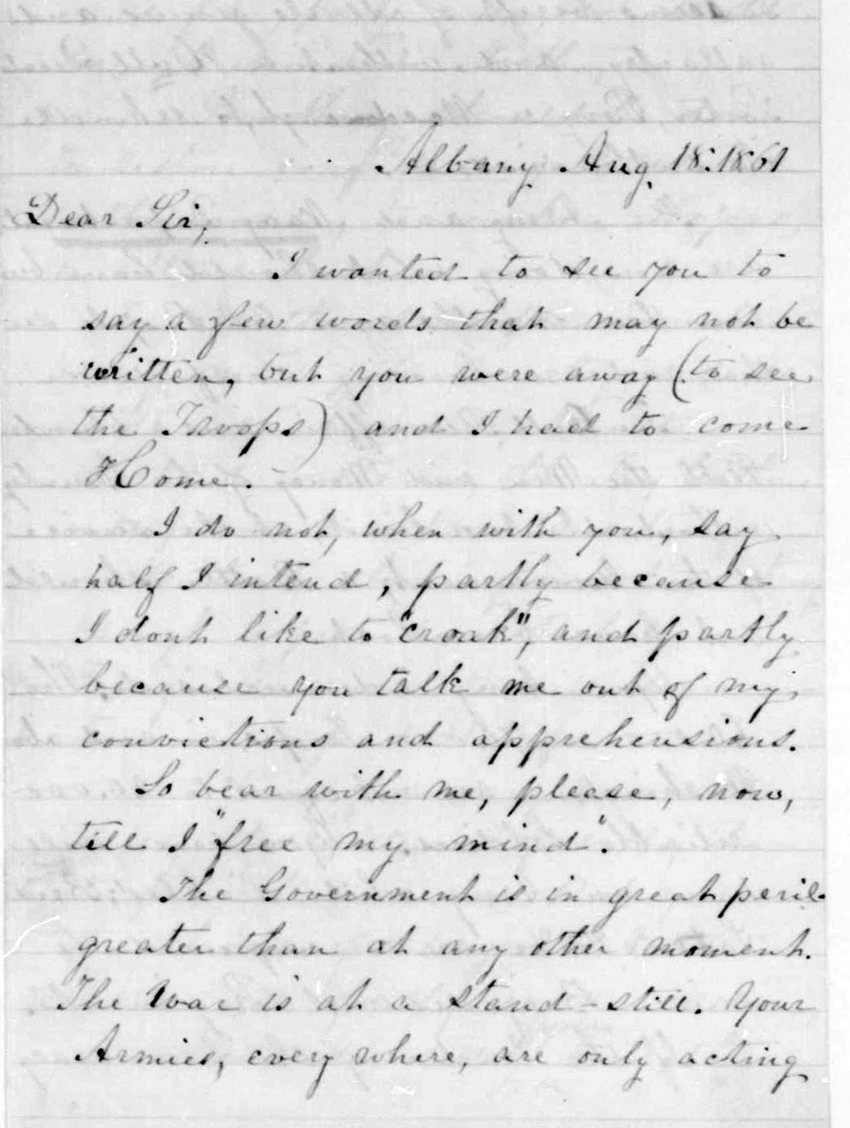 Albany Aug. 18. 1861
Dear Sir,
I wanted to see you to
say a few words that may not be
written, but you were away (to see
the Troops) and I had to come
Home.
I do not, when with you, say
half I intend, partly because
I dont like to "croak", and partly
because you talk me out of my
convictions and apprehensions.
So bear with me, please, now,
till I "free my mind".
The Government is in great peril
greater than at any other moment.
The War is at a stand-still. Your
Armies, every where, are only acting